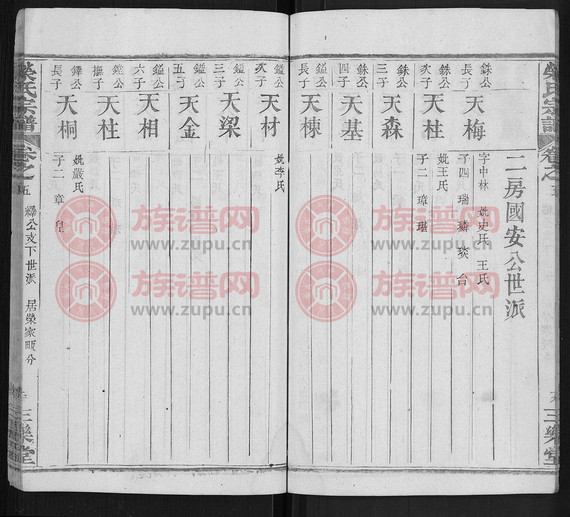 榮氏宗譜
卷之五
三樂堂
二房國安公世派
銖公長子
天梅
字中林 娶史氏 王氏
子四 瑞 琰 台
銖公次子
天柱
娶王氏
子二 璋 瑞
銖公三子
天森
銖公四子
天基
鎰公長子
天棟
鎰公次子
天材
娶李氏
鎰公三子
天梁
鎰公五子
天金
鎰公六子
天相
鐸公撫子
天柱
鐸公長子
天桐
娶嚴氏
子二 章
榮氏宗譜
卷之五
鐸公支下世派 居榮家
三樂堂
族谱网
www.zupu.cn
族谱网
www.zupu.cn
族谱网
www.zupu.cn
族谱网
www.zupu.cn